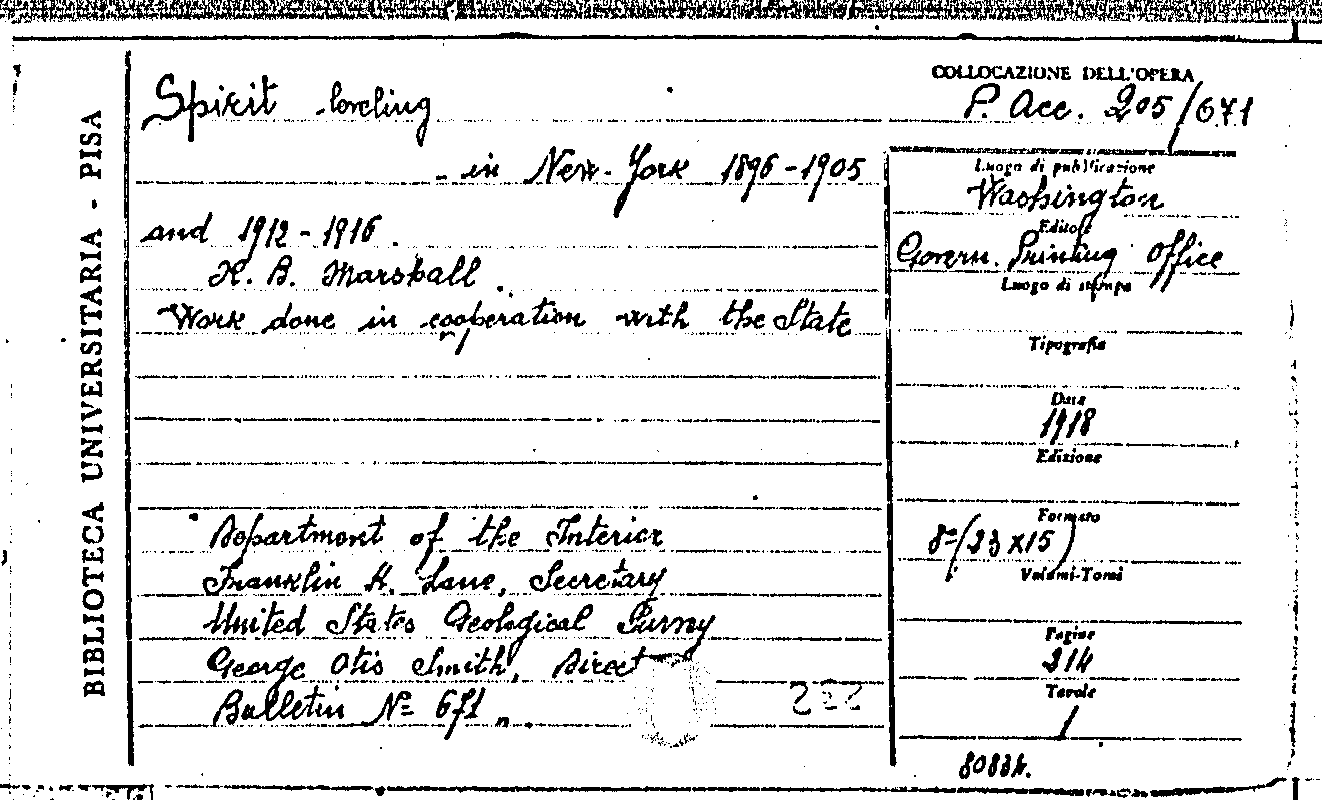 BIBLIOTECA UNIVERSITARIA - PISA
Spirit leveling
- in New-York 1896-1905
and 1912-1916.
R. B. Marshall.
Work done in cooperation with the State
Department of the Interior
Franklin K. Lane, Secretary
United States Geological Survey
George Otis Smith, Direct
Bulletin Nº 671
222
COLLOCAZIONE DELL'OPERA
P. Acc. 205/671
Luogo di pubblicazione
Washington
Editore
Govern. Printing Office
Luogo di stampa
Tipografia
Data
1918
Edizione
Formato
8º (23 x 15)
Volumi-Tomi
Pagine
214
Tavole
1